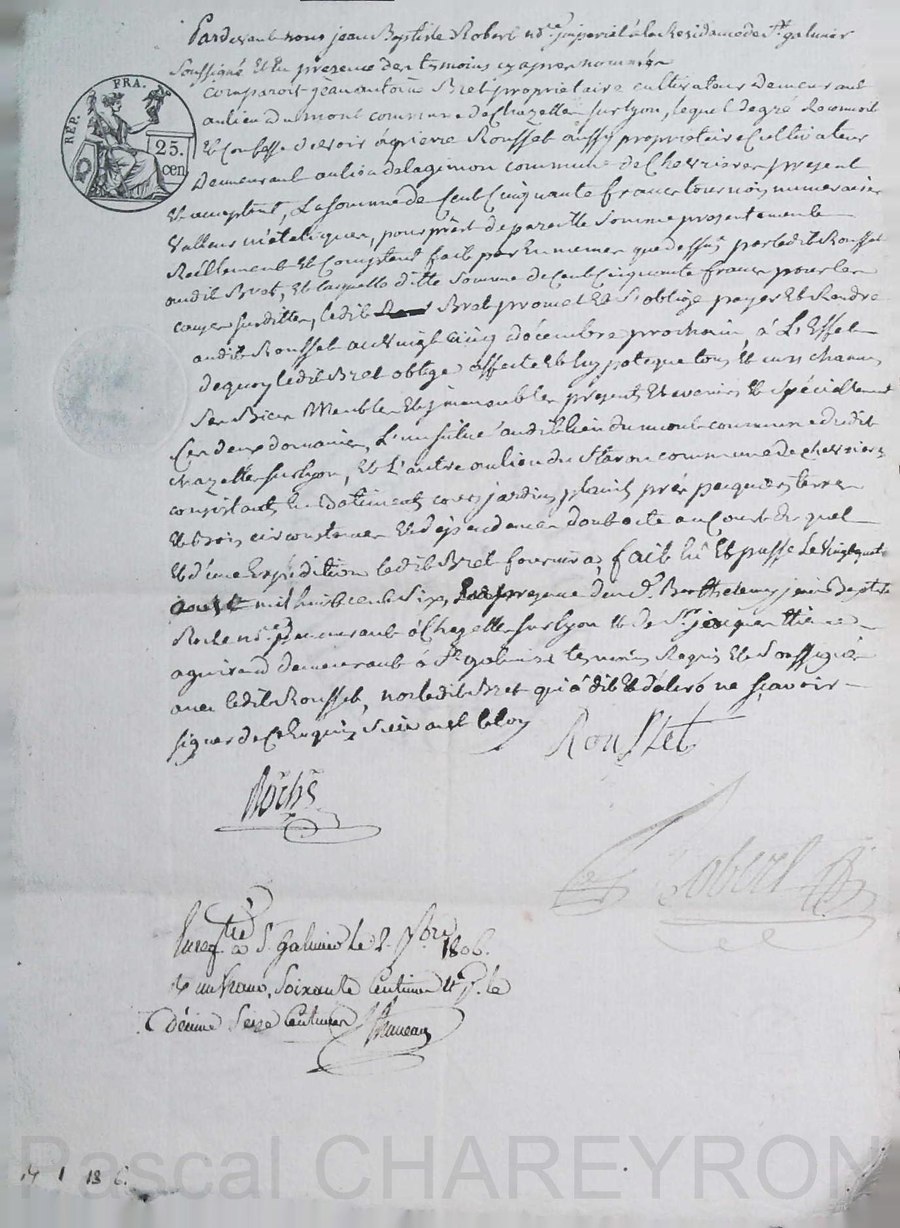 Pardevant nous jean Baptiste Robert nre imperial à la Residence de St galmier
Soussigné Et En présence des temoins cy apres nommés
RÉP. FRA.
25.
cen
Comparoit jean antoine Bret propriétaire cultivateur Demeurant
au lieu Du mont commune de Chazelle sur lyon, lequel de gré Reconnoit
Et Confesse devoir à pierre Rousset aussy propriétaire Cultivateur
Demeurant au lieu de lagimon commune de Chevrieres present
Et acceptant, La somme de Cent Cinquante francs tournois numeraire
Valleur métalique, pour prêt de pareille Somme présentement
Réellement Et Comptant fait par En memes que dessus par ledit Rousset
audit Bret, Et laquelle ditte Somme de Cent Cinquante francs pour les
causes susdittes, ledit Bret promet Et S'oblige payer Et Rendre
audit Rousset au vingt cinq décembre prochain à L'Effet
de quoy ledit Bret oblige affecte Et hypoteque tous Et uns chacuns
Ses Biens Meubles Et jmmeubles présents Et avenirs Et spécialement
Ses deux domaines, L'un situé audit lieu du mont commune dudit
chazelle sur lyon, Et L'autre au lieu du commune de chevrieres
consistants En Batiments cours jardins prés paquiers terres
Et Bois circonstances Et dépendances dont acte au Cours duquel
Et d'une Expédition ledit Bret fournira, fait lû Et passé Le vingt quatre
aoust mil huit cent Six, En présence de Mr Barthelemy jean Baptiste
Roche nre Demeurant à Chazelle sur lyon Et de Sr
Demeurant à St galmier temoins Requis Et Soussignés
avec ledit Rousset, non ledit Bret qui a dit Et déclaré ne sçavoir
signer de Ce Enquis Suivant la loy
Rousset
Roche
Robert
Enregtré à St galmier le 2. 7bre 1806.
Rç un franc, Soixante Centimes Et p. le
Décime Seize Centimes
Pascal CHAREYRON